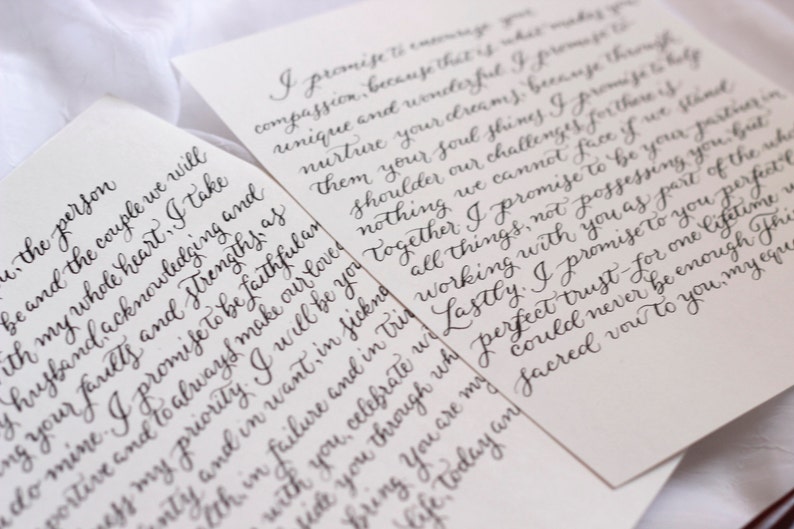 I promise to encourage your
compassion, because that is what makes you
unique and wonderful. I promise to
nurture your dreams, because through
them your soul shines. I promise to help
shoulder our challenges, for there is
nothing we cannot face if we stand
together. I promise to be your partner in
all things, not possessing you, but
working with you as part of the
Lastly, I promise to you perfect
perfect trust - for one lifetime
could never be enough. This
sacred vow to you, my
the person
be and the couple we will
with my whole heart, I take
husband, acknowledging and
your faults and strengths, as
do mine. I promise to be faithful
and to always make our love
my priority. I will be
and in want, in
in failure and in
with you, celebrate
you through
bring. You are my
life, today